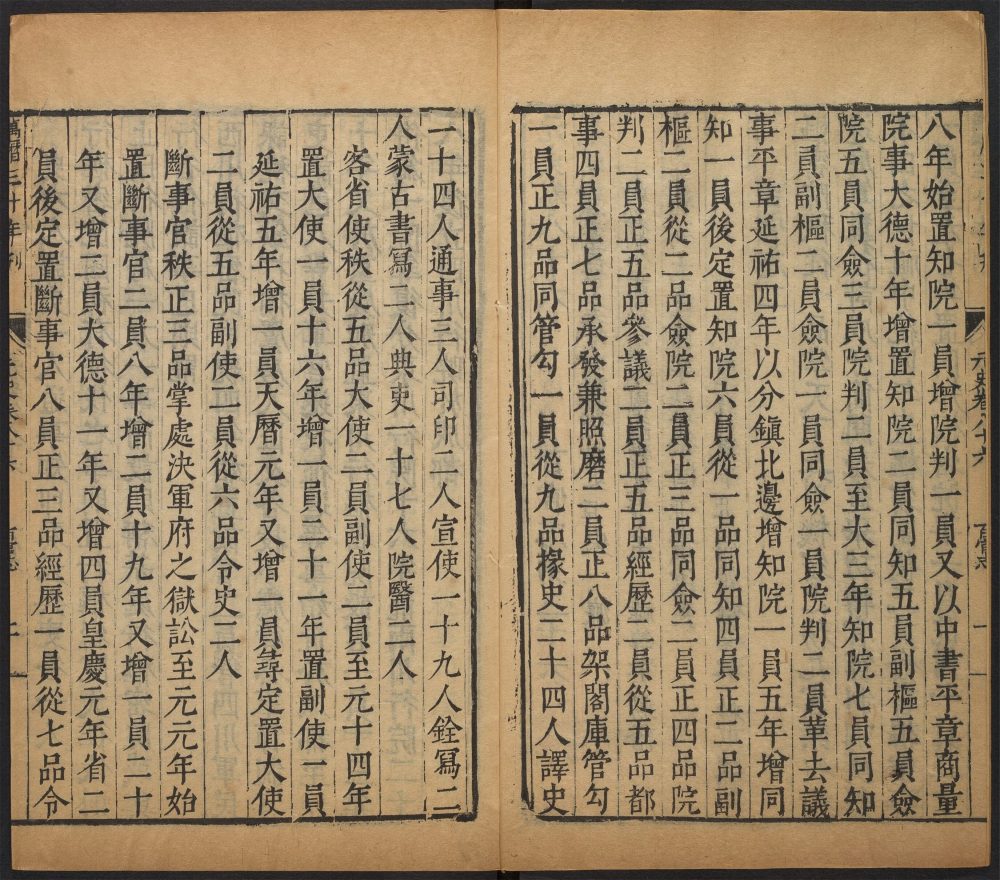 八年始置知院一員增院判一員又以中書平章商量
院事大德十年增置知院二員同知五員副樞五員僉
院五員同僉三員院判二員至大三年知院七員同知
二員副樞二員僉院一員同僉一員院判二員革去議
事平章延祐四年以分鎮北邊增知院一員五年增同
知一員後定置知院六員從一品同知四員正二品副
樞二員從二品僉院二員正三品同僉二員正四品院
判二員正五品參議二員正五品經歷二員從五品都
事四員正七品承發兼照磨二員正八品架閣庫管勾
一員正九品同管勾一員從九品掾史二十四人譯史
元史卷八十六
百官志
一
一十四人通事三人司印二人宣使一十九人銓寫二
人蒙古書寫二人典吏一十七人院醫二人
客省使秩從五品大使二員副使二員至元十四年
置大使一員十六年增一員二十一年置副使一員
延祐五年增一員天曆元年又增一員尋定置大使
二員從五品副使二員從六品令史二人
斷事官秩正三品掌處決軍府之獄訟至元元年始
置斷事官二員八年增二員十九年又增一員二十
年又增二員大德十一年又增四員皇慶元年省二
員後定置斷事官八員正三品經歷一員從七品令
萬曆三十年刊